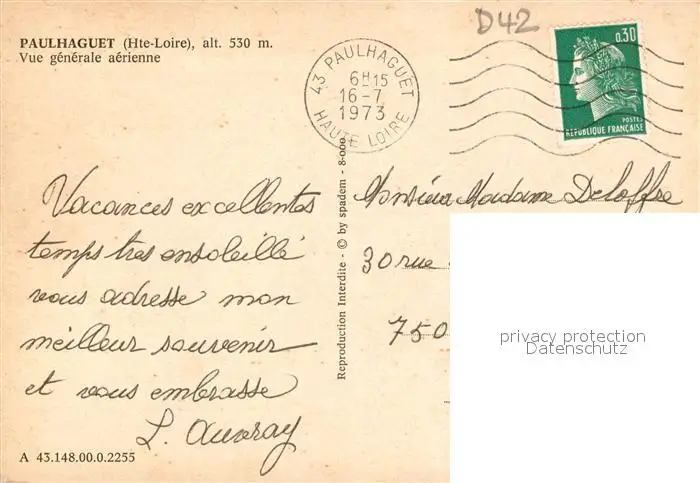 D42
PAULHAGUET (Hte-Loire), alt. 530 m.
Vue générale aérienne
43 PAULHAGUET
6H15
16-7
1973
HAUTE LOIRE
0,30
POSTES
REPUBLIQUE FRANÇAISE
Vacances excellentes
temps tres ensoleillé
vous adresse mon
meilleur souvenir
et vous embrasse
L. Auvray
A 43.148.00.0.2255
Reproduction Interdite - © by spadem - 8-000
Monsieur Madame Deloffre
30 rue
750
privacy protection
Datenschutz